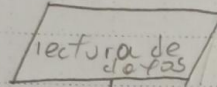 lectura de
datos